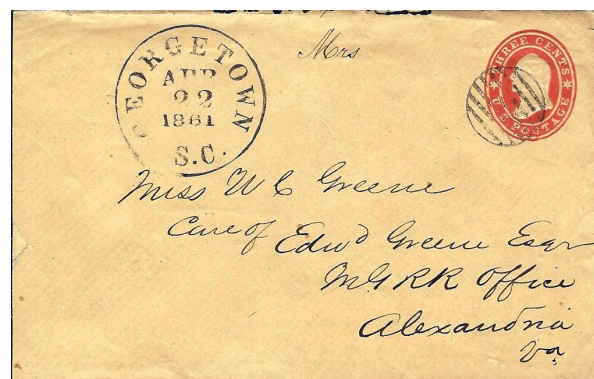 Mrs
GEORGETOWN
APR
22
1861
S.C.
THREE CENTS
U.S. POSTAGE
Miss W C Greene
Care of Edwd Greene Esqr
M G R R Office
Alexandria
Va.